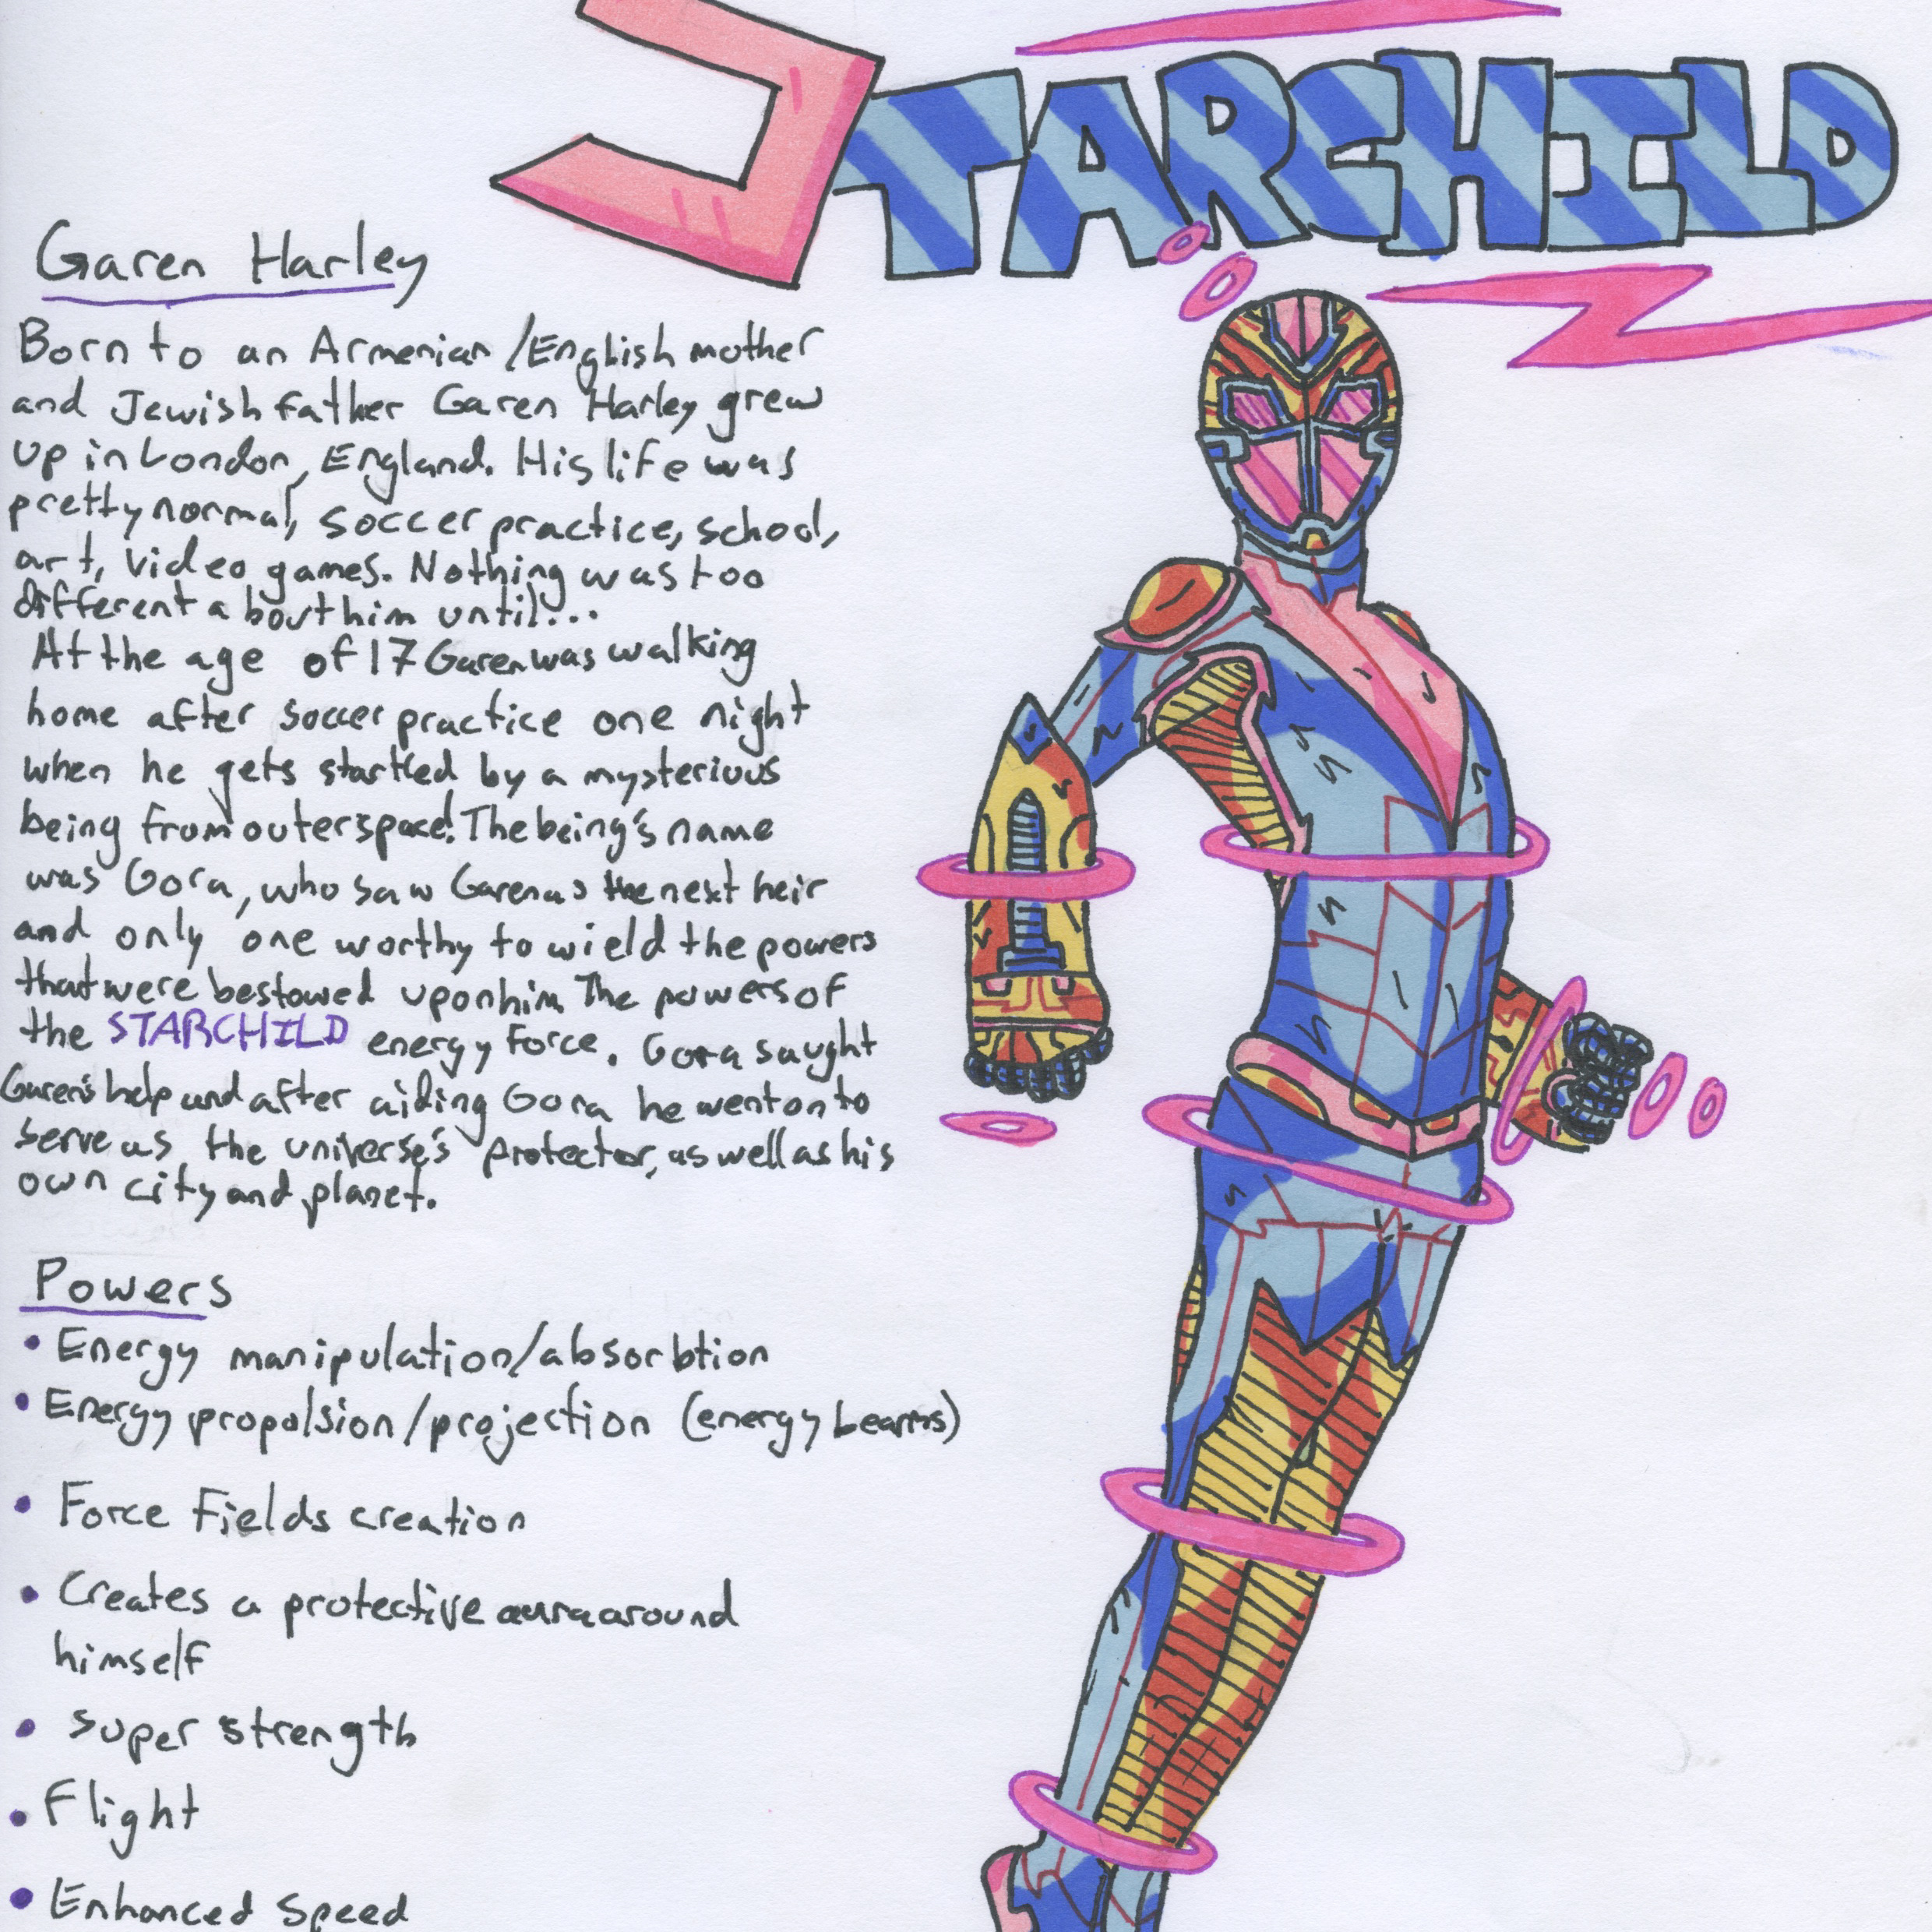 STARCHILD
Garen Harley
Born to an Armenian/English mother
and Jewish father Garen Harley grew
up in London, England. His life was
pretty normal, soccer practice, school,
art, video games. Nothing was too
different about him until...
At the age of 17 Garen was walking
home after soccer practice one night
when he gets startled by a mysterious
being from outerspace! The being's name
was Gora, who saw Garen as the next heir
and only one worthy to wield the powers
that were bestowed upon him. The powers of
the STARCHILD energy force. Gora saught
Garen's help and after aiding Gora he went on to
serve as the universe's protector, as well as his
own city and planet.
Powers
• Energy manipulation/absorbtion
• Energy propolsion/projection (energy beams)
• Force Fields creation
• Creates a protective aura around
himself
• Super strength
• Flight
• Enhanced speed